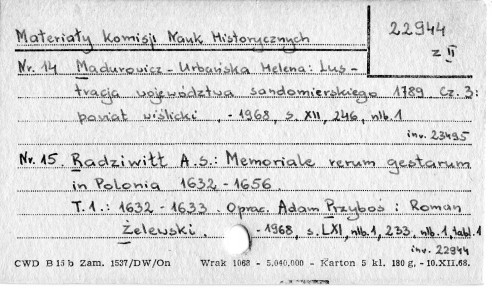 Materiały Komisji Nauk Historycznych
22944
z II
Nr. 14 Madurowicz-Urbańska Helena: Lus-
tracja województwa sandomierskiego 1789 Cz. 3:
powiat wiślicki, -1968, s. XII, 246, nlb. 1
inw. 23495
Nr. 15 Radziwiłł A.S.: Memoriale rerum gestarum
in Polonia 1632-1656
T. 1.: 1632-1633 Oprac. Adam Przyboś i Roman
Żelewski. -1968, s. LXI, nlb. 1, 233, nlb. 1, tabl. 1
inw. 22944
CWD B 15 b Zam. 1537/DW/On Wrak 1068 - 5,040,000 - Karton 5 kl. 180 g, -10.XII.68.